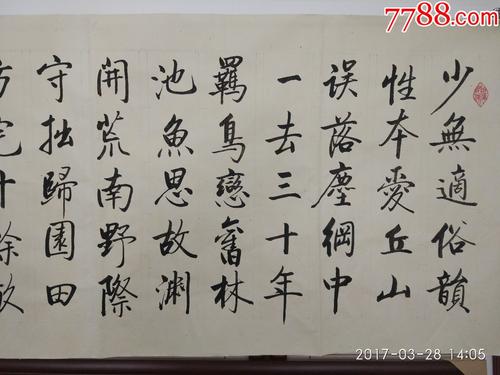 7788.com
少無適俗韻
性本愛丘山
误落塵綱中
一去三十年
羈鳥戀舊林
池魚思故渊
開荒南野際
守拙歸園田
方宅十
2017-03-28 14:05